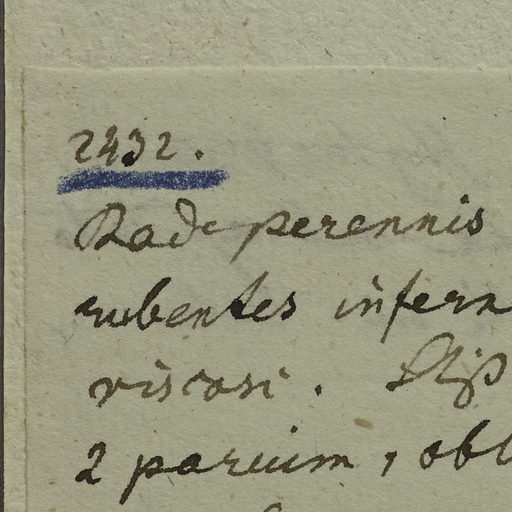 2432.
Radc perennis
rubentes infern
viscosi. Stip
2 parum, obl